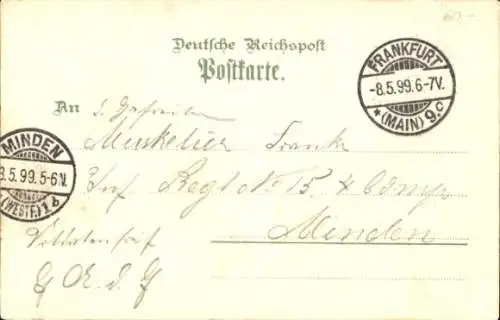 60,-
Deutsche Reichspost
Postkarte.
FRANKFURT
-8.5.99.6-7V.
* (MAIN) 9.c
An d. Gefreiten
Musketier Frank
Inf Regt No 15. 4 Comp
MINDEN
8.5.99.5-6N.
(WESTF.) 1 b
Minden
Soldatenbrief
E. A. d. E